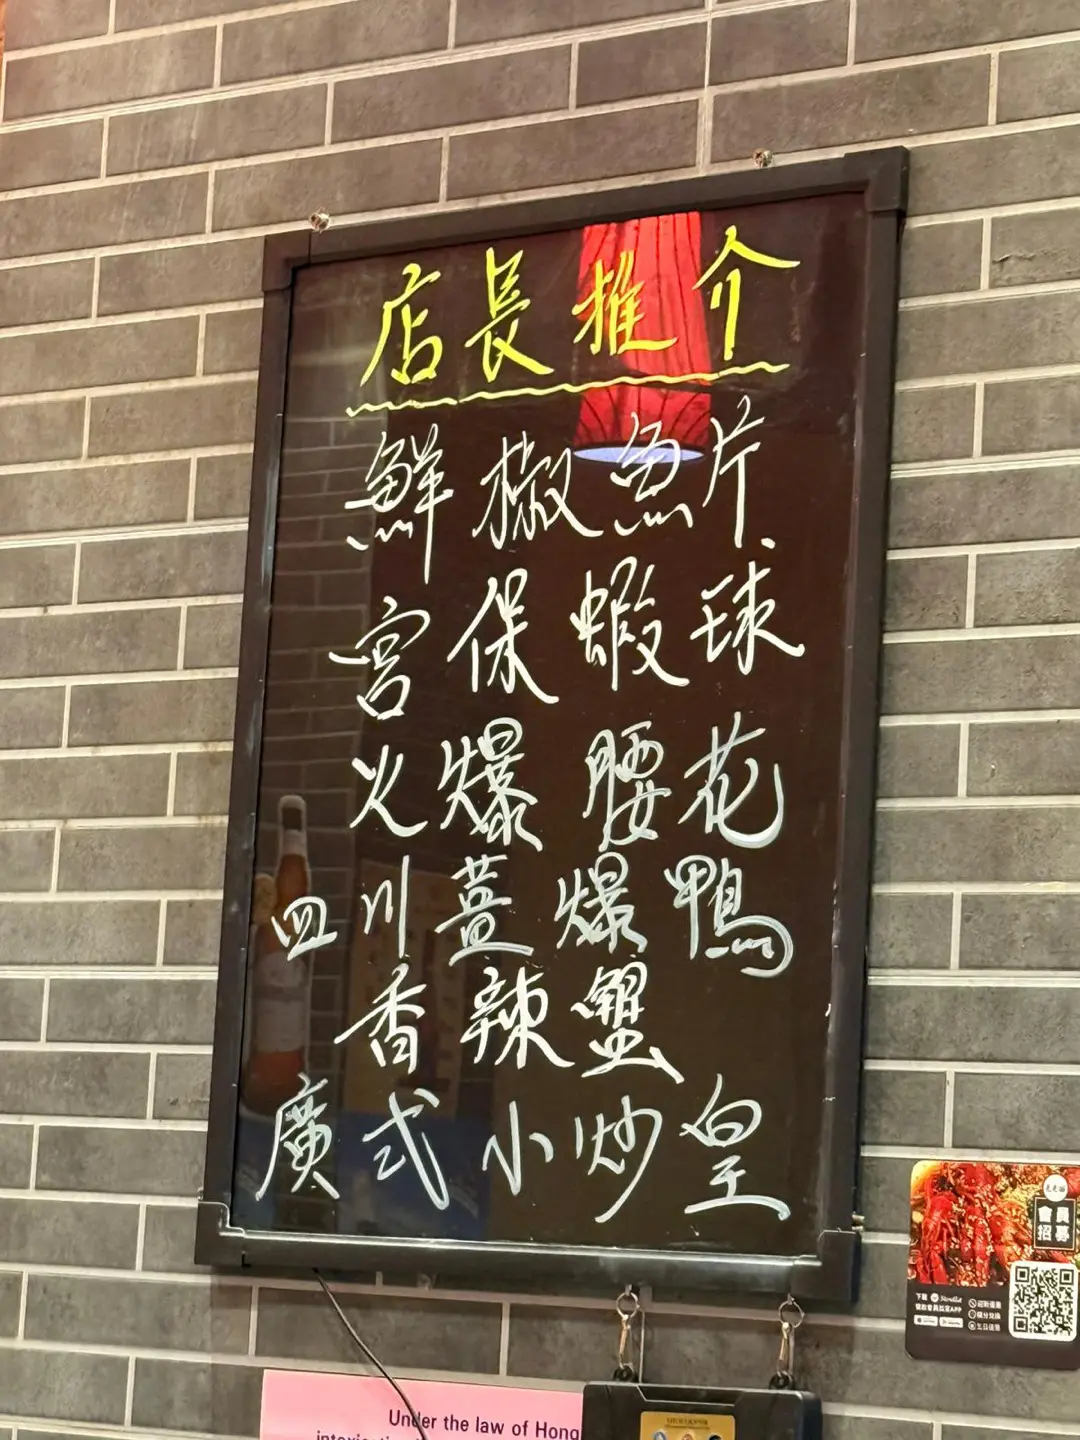 店長推介
鮮椒魚片
宮保蝦球
火爆腰花
四川薑爆鴨
香辣蟹
廣式小炒皇
會員
招募
下載
Under the law of Hong